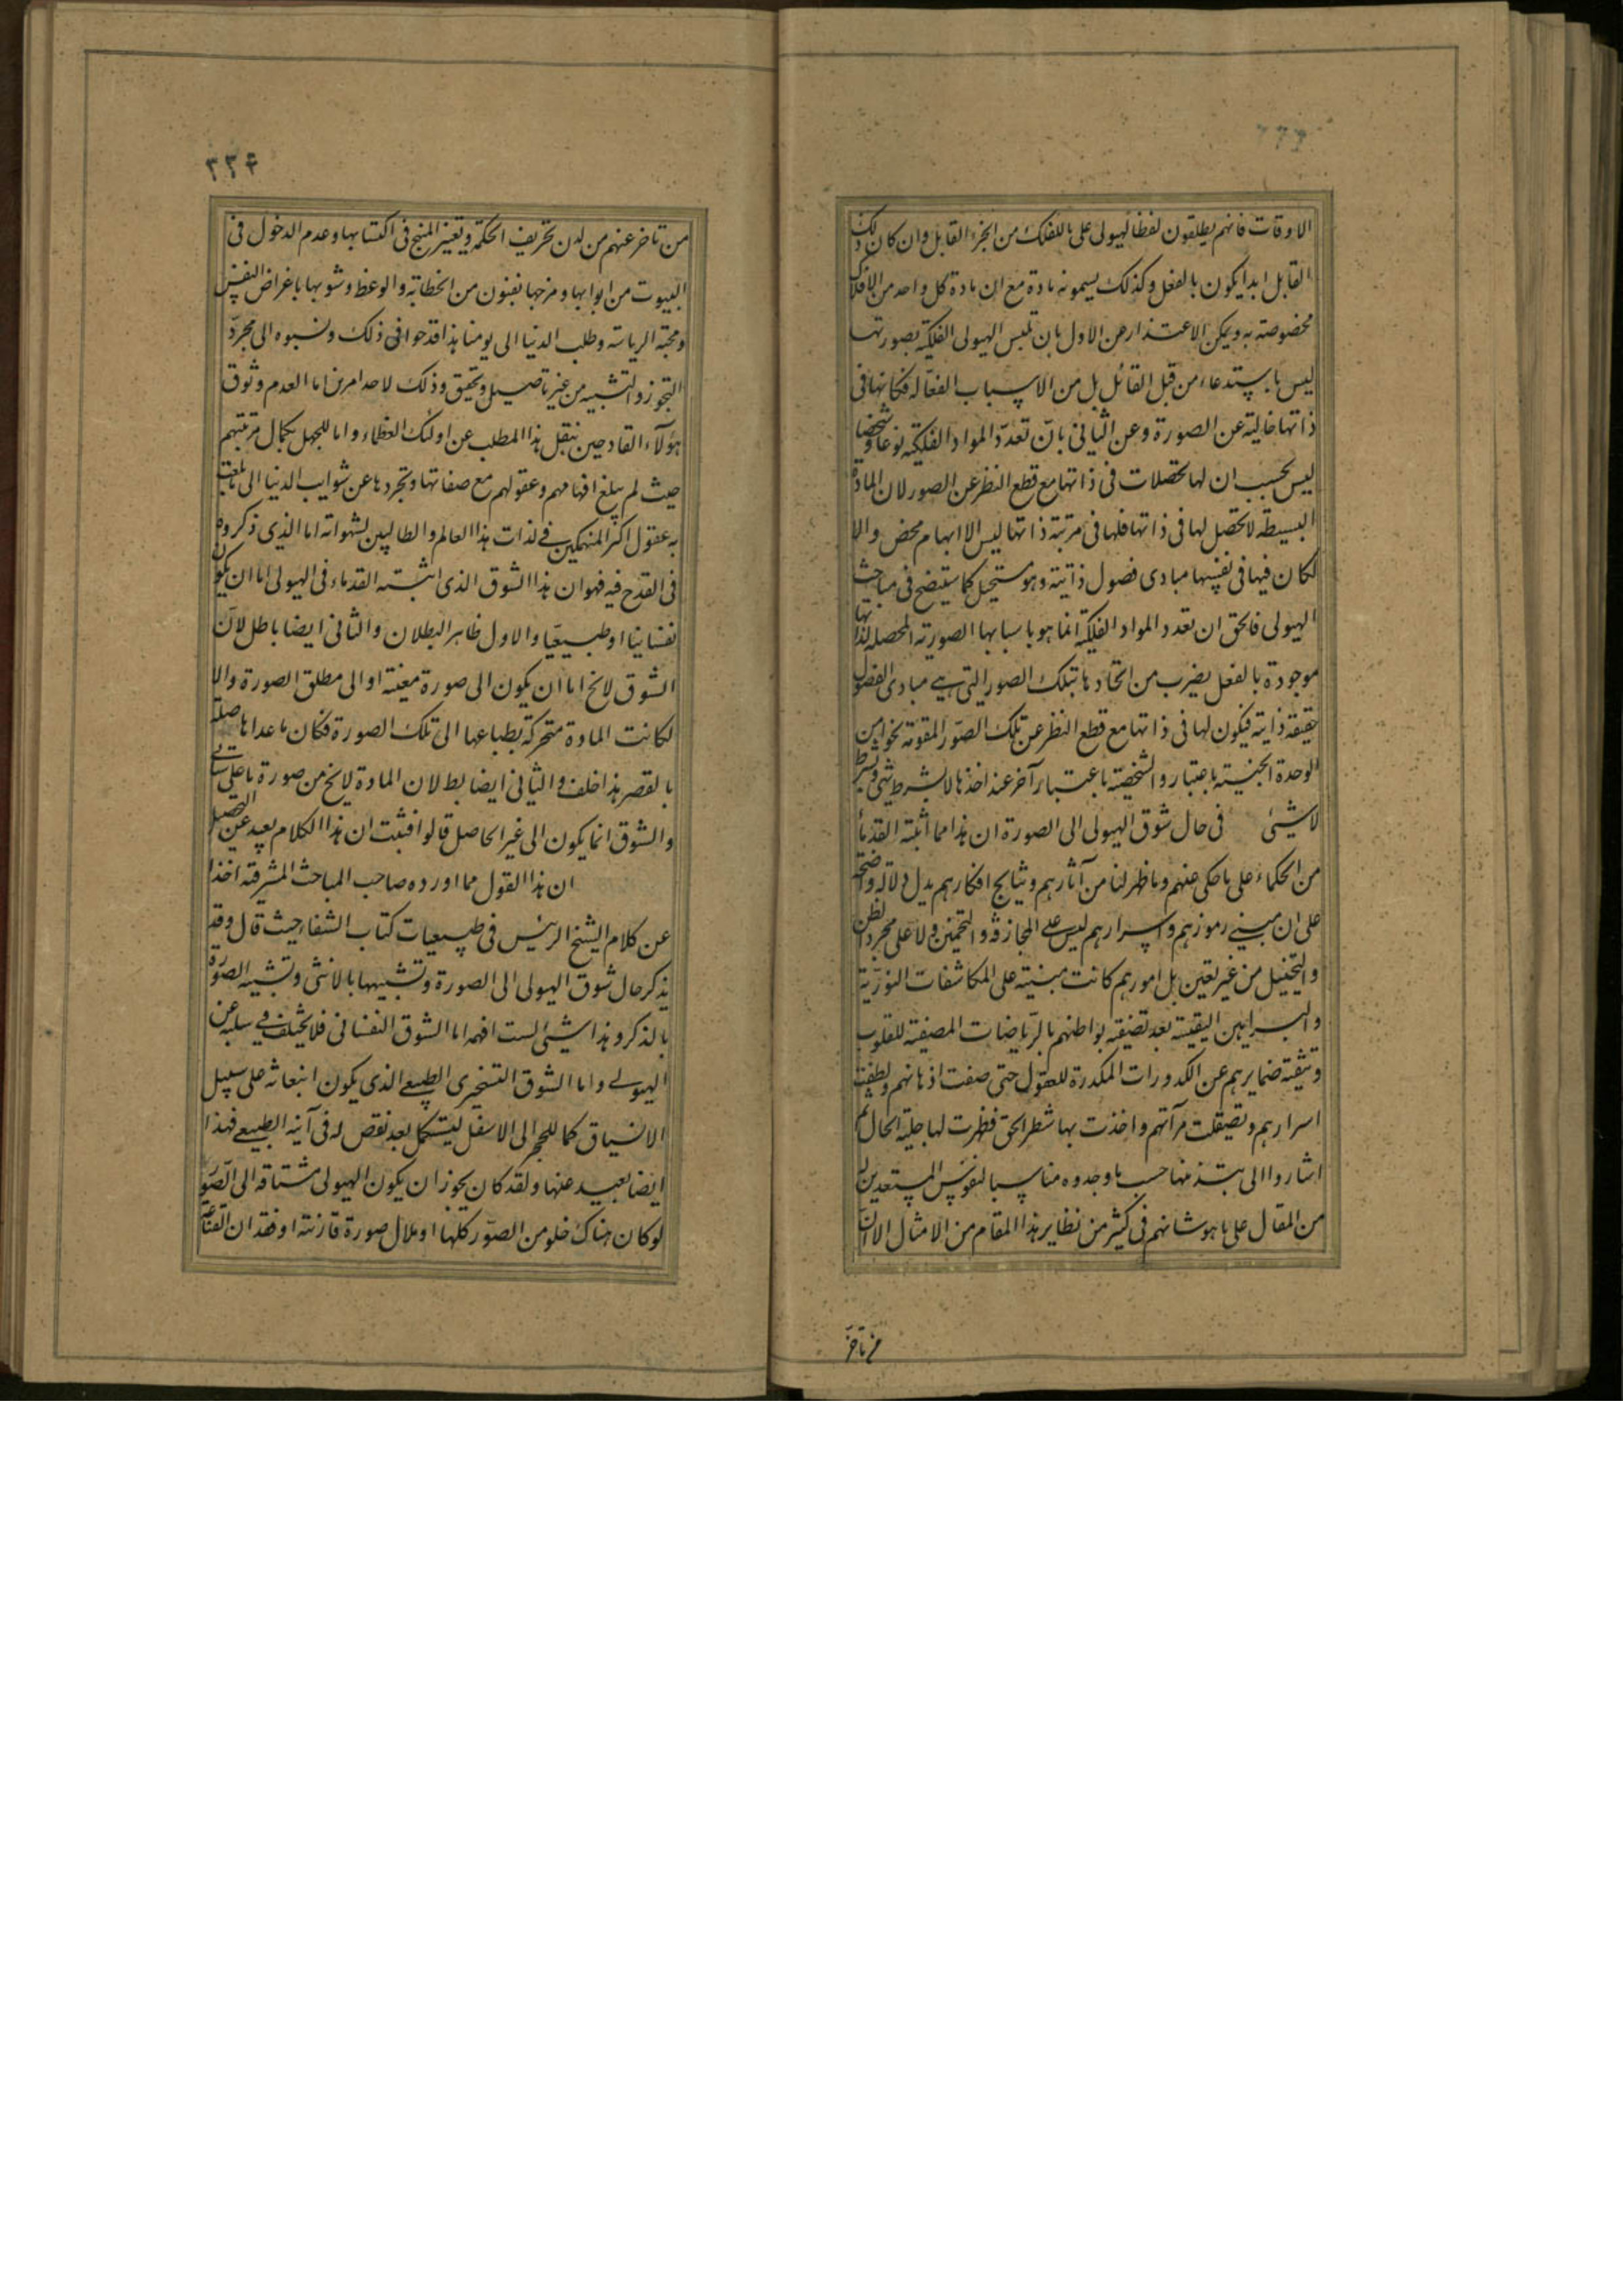 الاوقات فانهم يطلقون لفظ الهيولى على ما للفلك من الجزء القابل وان كان ذلك
القابل ابدا يكون بالفعل وكذلك يسمونه مادة مع ان مادة كل واحد من الافلاك
مخصوصة به ويمكن الاعتذار عن الاول بان تلبس الهيولى الفلكية بصورتها
ليس باستدعاء من قبل القائل بل من الاسباب الفعاله فكانها فى
ذاتها خالية عن الصورة وعن الثانى بانّ تعدّد المواد الفلكية نوعا وشخصا
ليس بحسب ان لها تحصلات فى ذاتها مع قطع النظر عن الصور لان المادة
البسيطة لا تحصل لها فى ذاتها فلها فى مرتبة ذاتها ليس الا ابهام محض والا
لكان فيها فى نفسها مبادى فصول ذاتية وهو مستحيل كما ستيضح فى مباحث
الهيولى فالحق ان تعدد المواد الفلكية انما هو باسبابها الصورية المحصله لذاتها
موجودة بالفعل بضرب من اتحادها بتلك الصور التى هى مبادى الفصول
حقيقة ذاتية فيكون لها فى ذاتها مع قطع النظر عن تلك الصّور المقومة نحو من
الوحدة الجنسية باعتبار والشخصيّة باعتبار آخر عند اخذها لا بشرط شئ وبشرط
لا شئ فى حال شوق الهيولى الى الصورة ان هذا مما اثبته القدماء
من الحكماء على ما حكى عنهم وما ظهر لنا من آثارهم ونتايج افكارهم يدل دلالة واضحة
على ان مبنى رموزهم واسرارهم ليس على المجازفة والتخمين ولا على مجرد الظن
والتخييل من غير تعين بل امورهم كانت مبنية على المكاشفات النوريّة
والبراهين اليقينية بعد تصفية بواطنهم بالرّياضات المصفية للقلوب
وتنقية ضمايرهم عن الكدورات المكدرة للعقول حتى صفت اذهانهم ولطفت
اسرارهم وتصيقلت مرآتهم واخذت بها شطر الحق فظهرت لها جلية الحال ثم
اشاروا الى نبذ منها حسب ما وجدوه مناسبا لنفوس المستعدين له
من المقال على ما هو شانهم فى كثير من نظاير هذا المقام من الامثال الا ان
من تاخر
٢٢٤
من تاخر عنهم من لدن تحريف الحكمة وتغيير المنهج فى اكتسابها وعدم الدخول فى
البيوت من ابوابها ومزجها بفنون من الخطابة والوعظ وشوبها باغراض النفس
ومحبة الرياسة وطلب الدنيا الى يومنا هذا قدحوا فى ذلك ونسبوه الى مجردّ
التجوز والتشبيه من غير تاصيل وتحقيق وذلك لاحد امرين اما العدم وثوق
هؤلآء القادحين بنقل هذا المطلب عن اولئك العظماء واما للجهل بكمال مرتبتهم
حيث لم يبلغ افهامهم وعقولهم مع صفاتها وتجردها عن شوايب الدنيا الى ما بلغت
به عقول اكثر المنهمكين فى لذات هذا العالم والطالبين لشهواته اما الذى ذكروه
فى القدح فيه فهو ان هذا الشوق الذى اثبته القدماء فى الهيولى اما ان يكون
نفسانيا او طبيعيّا والاول ظاهر البطلان والثانى ايضا باطل لانّ
الشوق لا يخ اما ان يكون الى صورة معينة او الى مطلق الصورة والا
لكانت المادة متحركة بطباعها الى تلك الصورة فكان ما عداها حاصلة
بالقصر هذا خلف والثانى ايضا بط لان المادة لا يخ من صورة ما على ما سياتى
والشوق انما يكون الى غير الحاصل قالوا فثبت ان هذا الكلام بعيد عن التحصيل
ان هذا القول مما اورده صاحب المباحث المشرقية اخذا
عن كلام الشيخ الرئيس فى طبيعيات كتاب الشفا حيث قال وقد
يذكر حال شوق الهيولى الى الصورة وتشبيهها بالانثى وتشبيه الصورة
بالذكر وهذا شئ لست افهمه اما الشوق النفسانى فلا يختلف فى سلبه عن
الهيولى واما الشوق التسخيرى الطبيعى الذى يكون انبعاثه على سبيل
الانسياق كما للحجر الى الاسفل ليستكمل بعد نقص له فى آينه الطبيعى فهذا
ايضا بعيد عنها ولقد كان يجوز ان يكون الهيولى مشتاقة الى الصّور
لو كان هناك خلو من الصوّر كلها او ملال صورة قارنته او فقدان القناعة